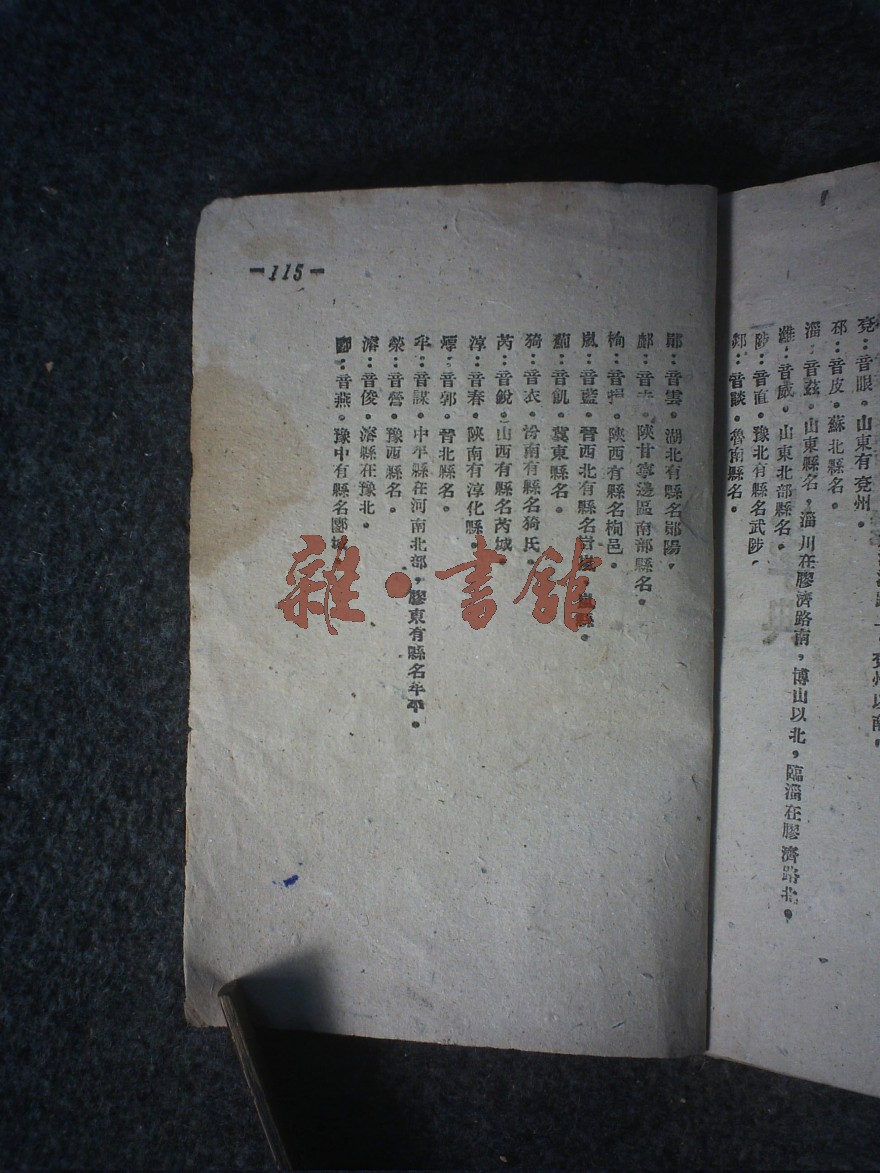 兗：音眼．山東有兗州．
邳：音皮．蘇北縣名．
淄：音茲．山東縣名，淄川在膠濟路南，博山以北，臨淄在膠濟路北．
濰：音威．山東北部縣名．
陟：音直．豫北有縣名武陟．
郯：音談．魯南縣名．
－115－
鄖：音雲．湖北有縣名鄖陽．
鄜：音．陝甘寧邊區南部縣名．
栒：音．陝西有縣名栒邑．
嵐：音藍．晉西北有縣名嵐縣．
薊：音飢．冀東縣名．
猗：音衣．汾南有縣名猗氏．
芮：音銳．山西有縣名芮城
淳：音春．陝南有淳化縣．
崞：音郭．晉北縣名．
牟：音謀．中牟縣在河南北部，膠東有縣名牟平．
滎：音營．豫西縣名．
濬：音俊．濬縣在豫北．
郾：音燕．豫中有縣名郾城
雜・書館